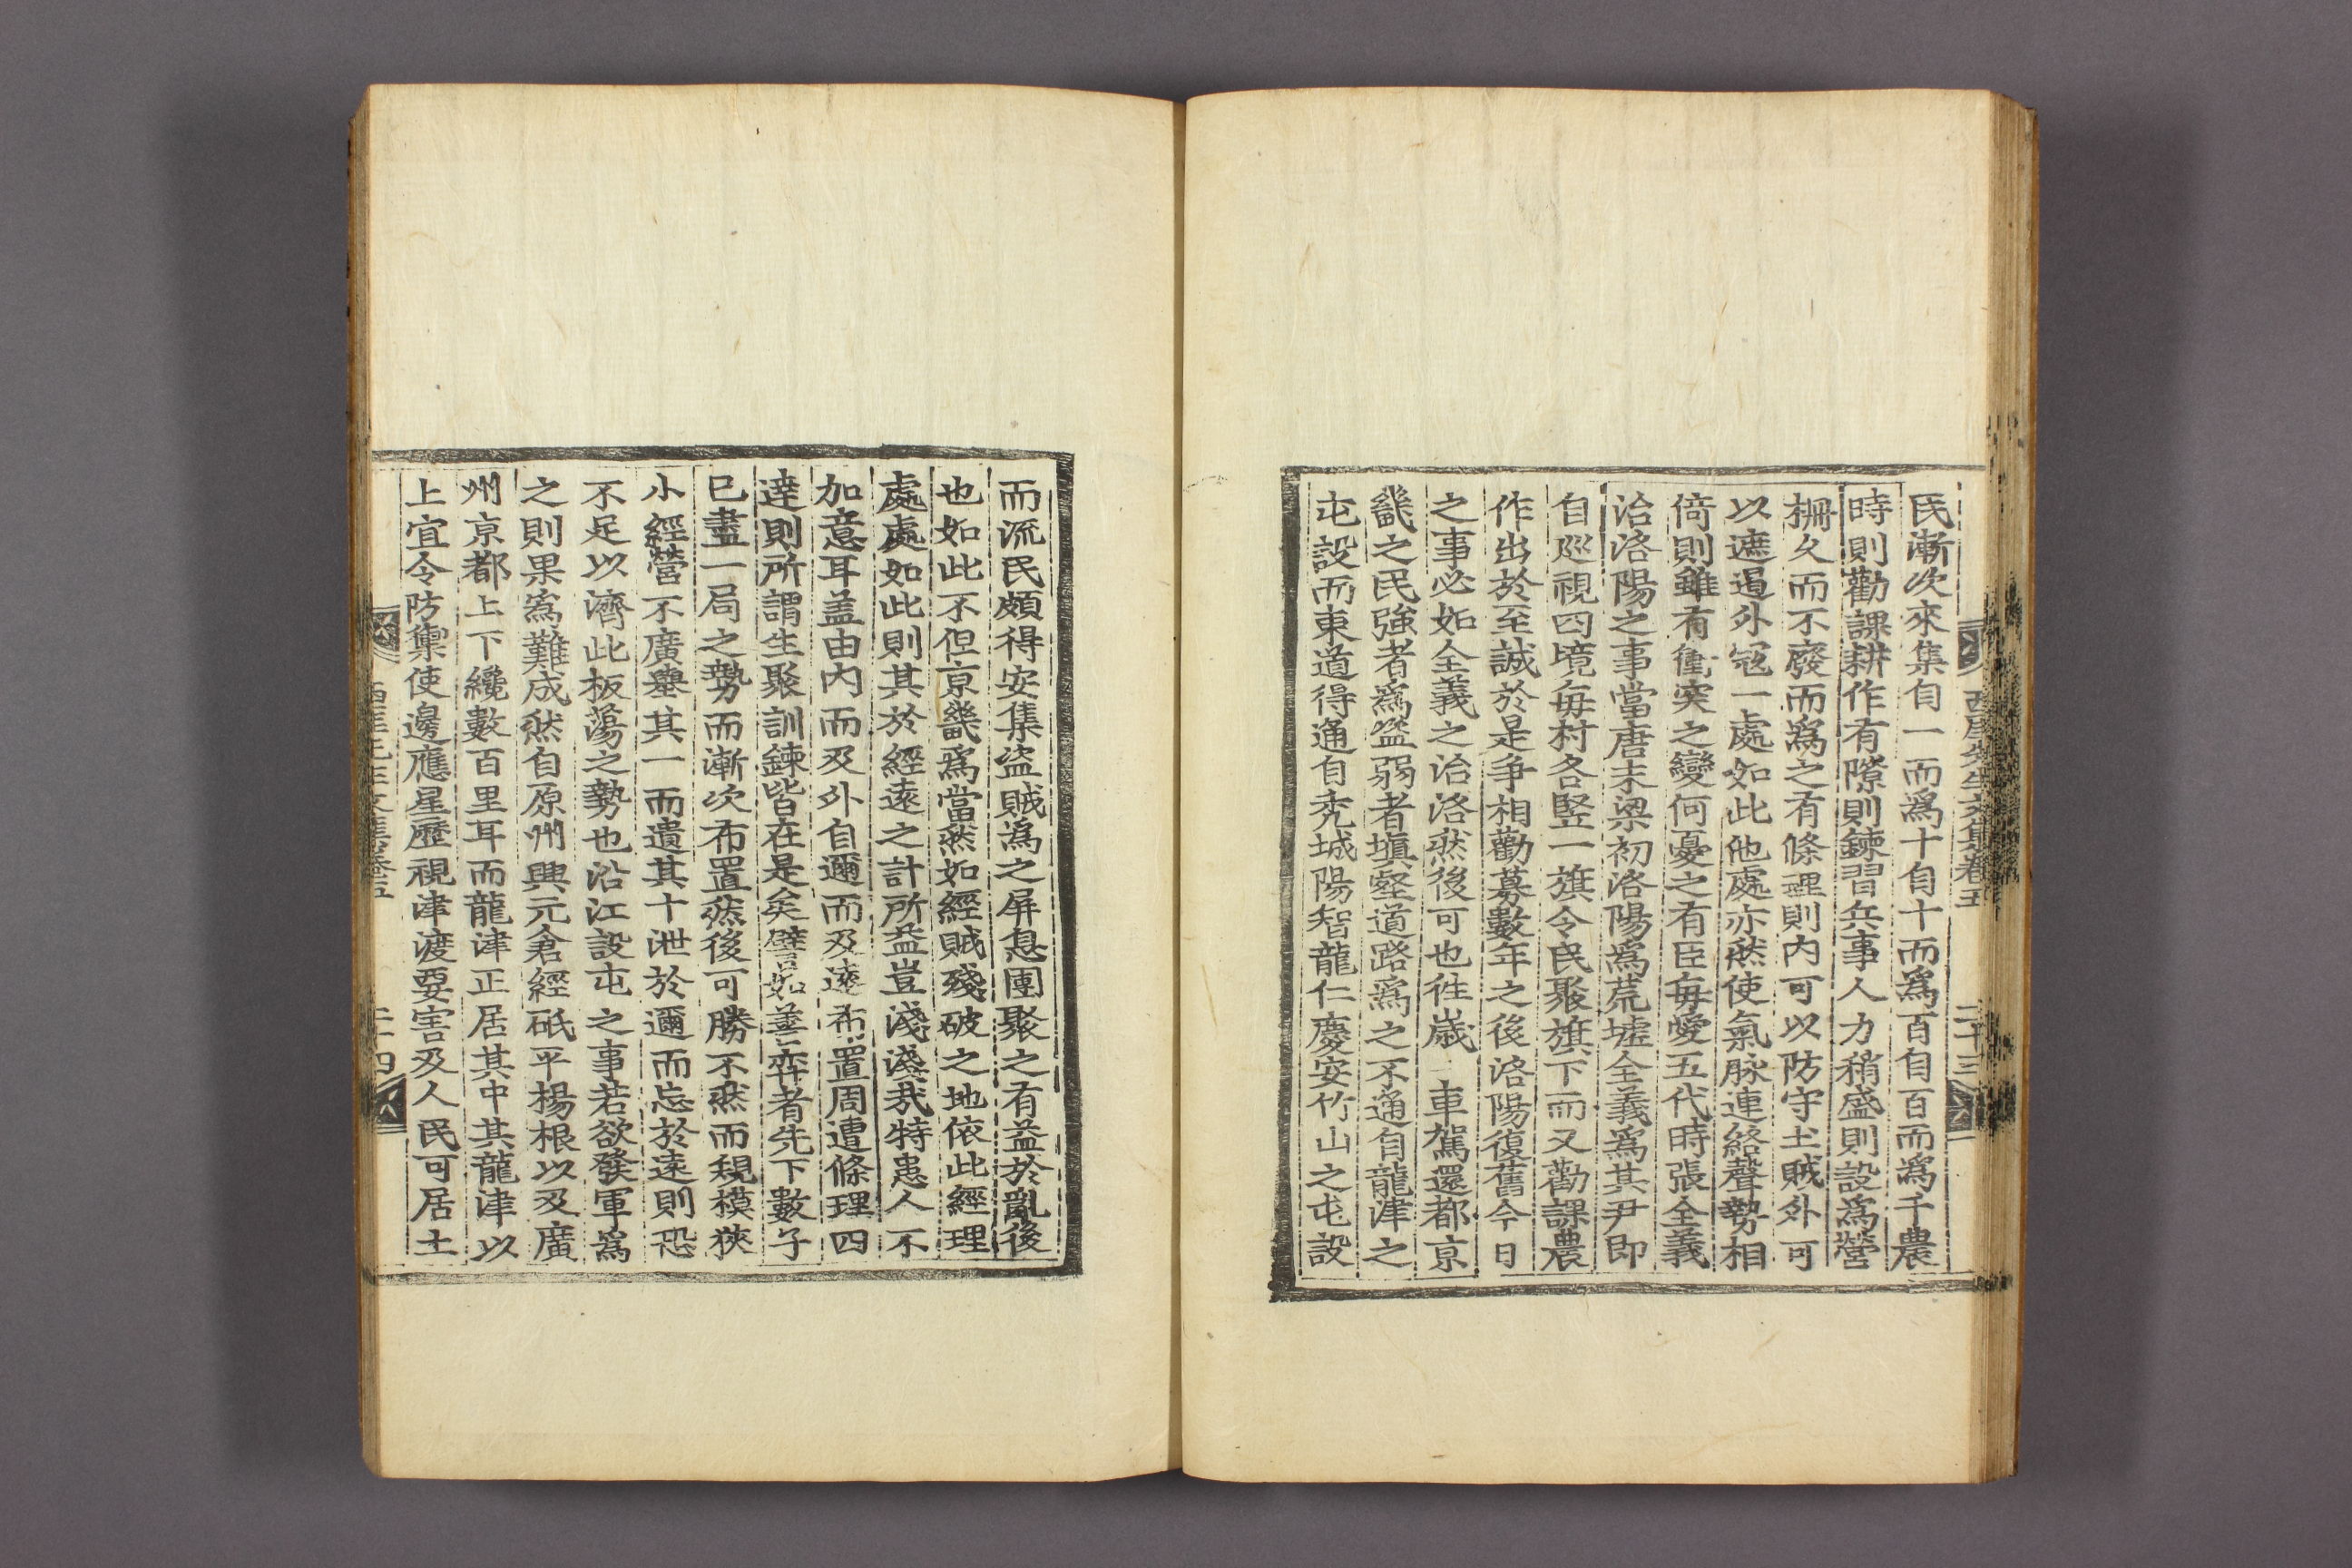 西厓先生文集卷五
二十三
民漸次來集自一而爲十自十而爲百自百而爲千農
時則勸課耕作有隙則鍊習兵事人力稍盛則設爲營
柵久而不廢而爲之有條理則內可以防守土賊外可
以遮遏外寇一處如此他處亦然使氣脉連絡聲勢相
倚則雖有衝突之變何憂之有臣每愛五代時張全義
治洛陽之事當唐末梁初洛陽爲荒墟全義爲其尹卽
自廵視四境每村各竪一旗令民聚旗下而又勸課農
作出於至誠於是爭相勸募數年之後洛陽復舊今日
之事必如全義之治洛然後可也徃歲 車駕還都京
畿之民強者爲盜弱者塡壑道路爲之不通自龍津之
屯設而東道得通自禿城陽智龍仁慶安竹山之屯設
而流民頗得安集盜賊爲之屏息團聚之有益於亂後
也如此不但京畿爲當然如經賊殘破之地依此經理
處處如此則其於經遠之計所益豈淺淺哉特患人不
加意耳盖由內而及外自邇而及遠布置周遭條理四
達則所謂生聚訓鍊皆在是矣譬如善弈者先下數子
已盡一局之勢而漸次布置然後可勝不然而規模狹
小經營不廣擧其一而遺其十泄於邇而忘於遠則恐
不足以濟此板蕩之勢也沿江設屯之事若欲發軍爲
之則果爲難成然自原州興元倉經砥平楊根以及廣
州京都上下纔數百里耳而龍津正居其中其龍津以
上宜令防禦使邊應星歷視津渡要害及人民可居土
西厓先生文集卷五
二十四